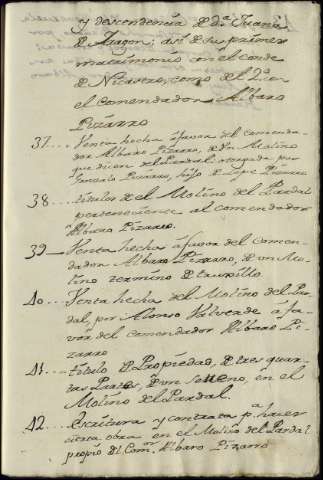 y descendencia de d.ª Juana
de Aragon; asi de su primer
matrimonio con el conde
de Nicastro, como del 2.º en
el Comendador Albaro
Pizarro
37.... Venta hecha á favor del comenda-
dor Albaro Pizarro, de un Molino
que dicen del Pardal, otorgada por
Gonzalo Pizarro, hijo de Lope Pizarro
38.... titulos de el Molino del Pardal
perteneciente al comendador
Albaro Pizarro.
39.. Venta hecha á favor del Comen-
dador Albaro Pizarro, de un Mo-
lino termino de
40... Venta hecha del Molino del Par-
dal, por Alonso Valverde á fa-
vor del comendador Albaro Pi-
zarro
41.... titulo de Propiedad, de tres quar-
tas Partes, de un en el
Molino del Pardal.
42... Escritura y contrata p.ª hacer
cierta obra en el Molino del Pardal
propio del Com.ºr Albaro Pizarro